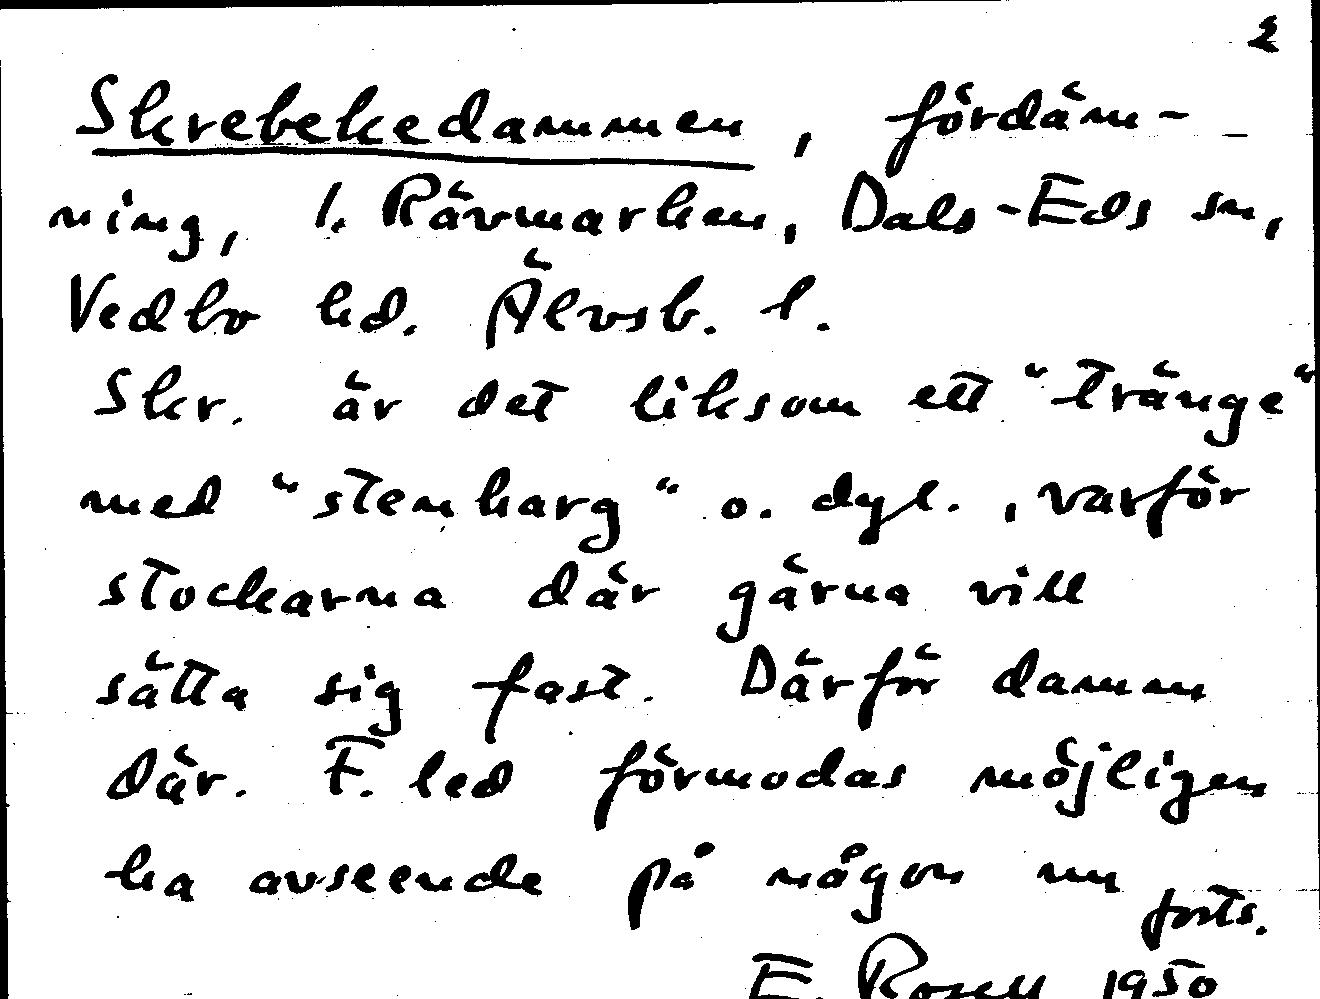 2
Skrebekedammen, fördäm-
ning, l. Rävmarken, Dals-Eds sn,
Vedbo hd. Älvsb. l.
Skr. är det liksom ett "tränge"
med "stenharg" o. dyl., varför
stockarna där gärna vill
sätta sig fast. Därför damm
där. F. led förmodas möjligen
ha avseende på någon nu
forts.
E. Rosell 1950